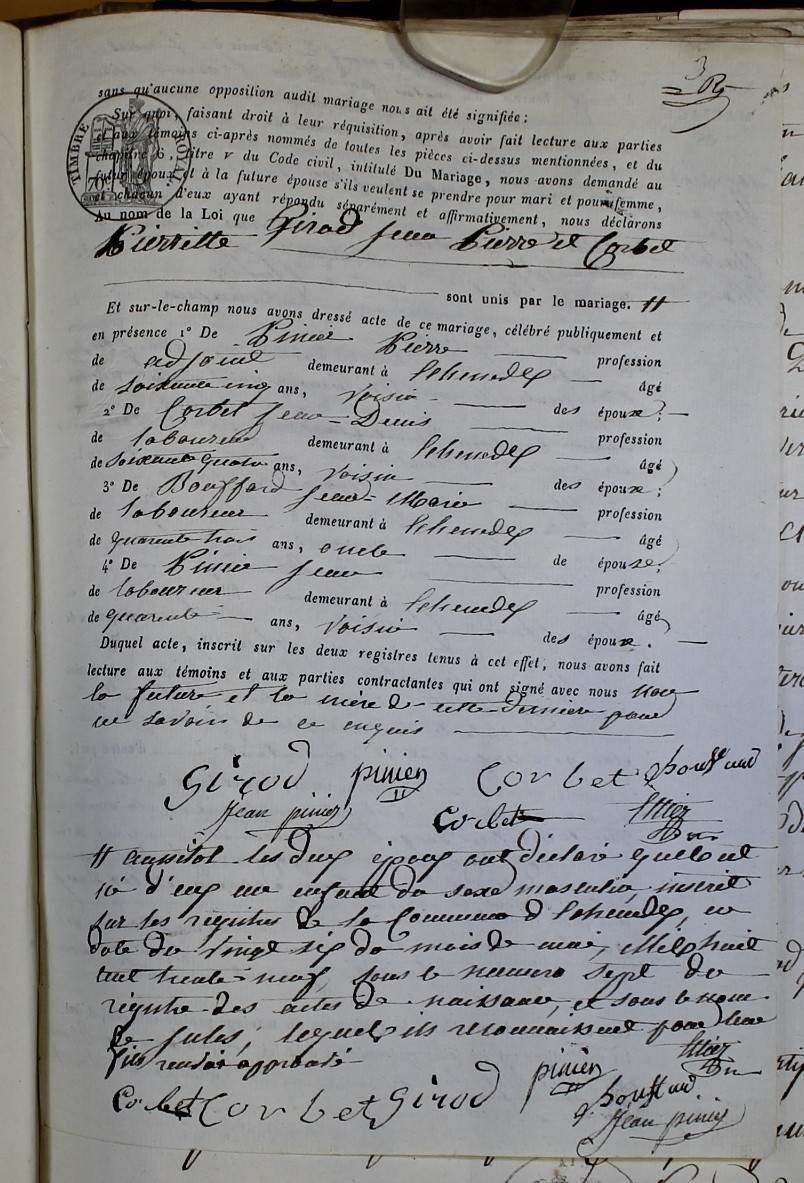 sans qu'aucune opposition audit mariage nous ait été signifiée ;
Sur quoi, faisant droit à leur réquisition, après avoir fait lecture aux parties
et aux témoins ci-après nommés de toutes les pièces ci-dessus mentionnées, et du
chapitre 6, titre v du Code civil, intitulé Du Mariage, nous avons demandé au
futur époux et à la future épouse s'ils veulent se prendre pour mari et pour femme,
et chacun d'eux ayant répondu séparément et affirmativement, nous déclarons
Au nom de la Loi que Girod Jean Pierre et Corbet
Pierrette
TIMBRE ROYAL
70
3
sont unis par le mariage. //
Et sur-le-champ nous avons dressé acte de ce mariage, célébré publiquement et
en présence 1° De Pinier Pierre profession
de adjoint demeurant à Echenedex âgé
de soixante cinq ans, voisin des époux ;
2° De Corbet Jean-Denis profession
de laboureur demeurant à Echenedex âgé
de soixante quatre ans, voisin des époux ;
3° De Bouffard Jean-Marie profession
de laboureur demeurant à Echenedex âgé
de quarante trois ans, oncle de épouse ;
4° De Pinier Jean profession
de laboureur demeurant à Echenedex âgé
de quarante ans, voisin des époux.
Duquel acte, inscrit sur les deux registres tenus à cet effet, nous avons fait
lecture aux témoins et aux parties contractantes qui ont signé avec nous non
la future et la mère de cette dernière pour
ne savoir de ce enquis
Girod pinier Corbet bouffard
Jean pinier Corbet
// aussitot les dux époux ont déclaré quel est
né d'eux un enfant du sexe masculin, inscrit
sur les registres de la Commune d'Echenedex, en
date du vingt six du mois de mai, mil huit
cent trente neuf, sous le numero sept du
registre des actes de naissance, et sous le nom
de Jules, lequel ils reconnaissent pour leur
fils renvoi approuvé
Corbet Corbet Girod pinier bouffard
Jean pinier